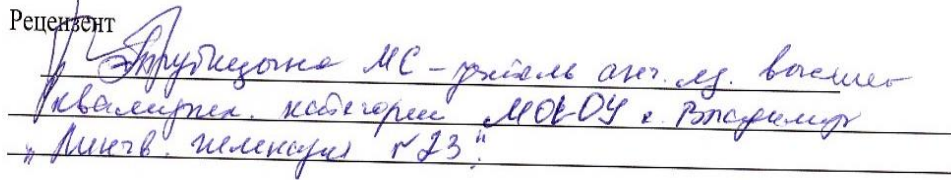 Рецензент
Трубицына МС – учитель анг. яз. высшей
квалифик. категории МОУ г. Владимир
„Лингв. гимназия №23"